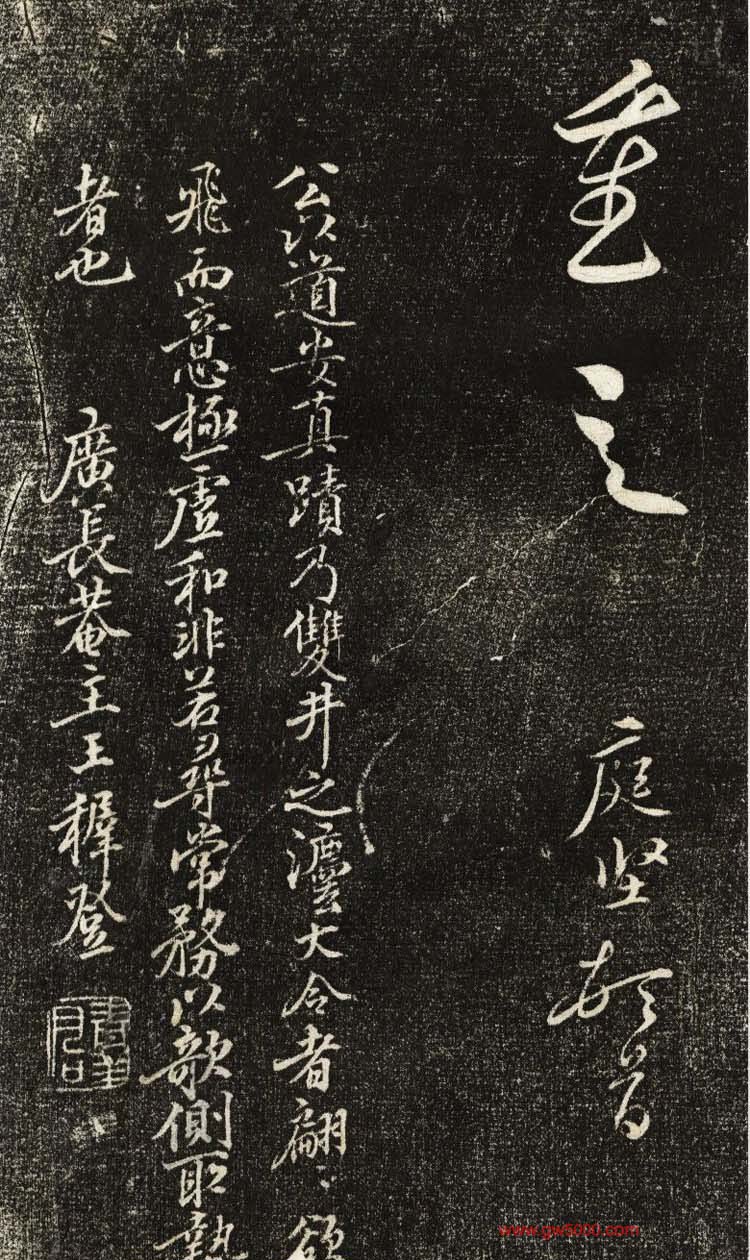 重之
庭坚頓首
公以道安真蹟乃雙井之灋大令者翩〻欲
飛而意極虛和非若尋常務以欹側取執
者也
廣長菴主王穉登
www.gw5000.com